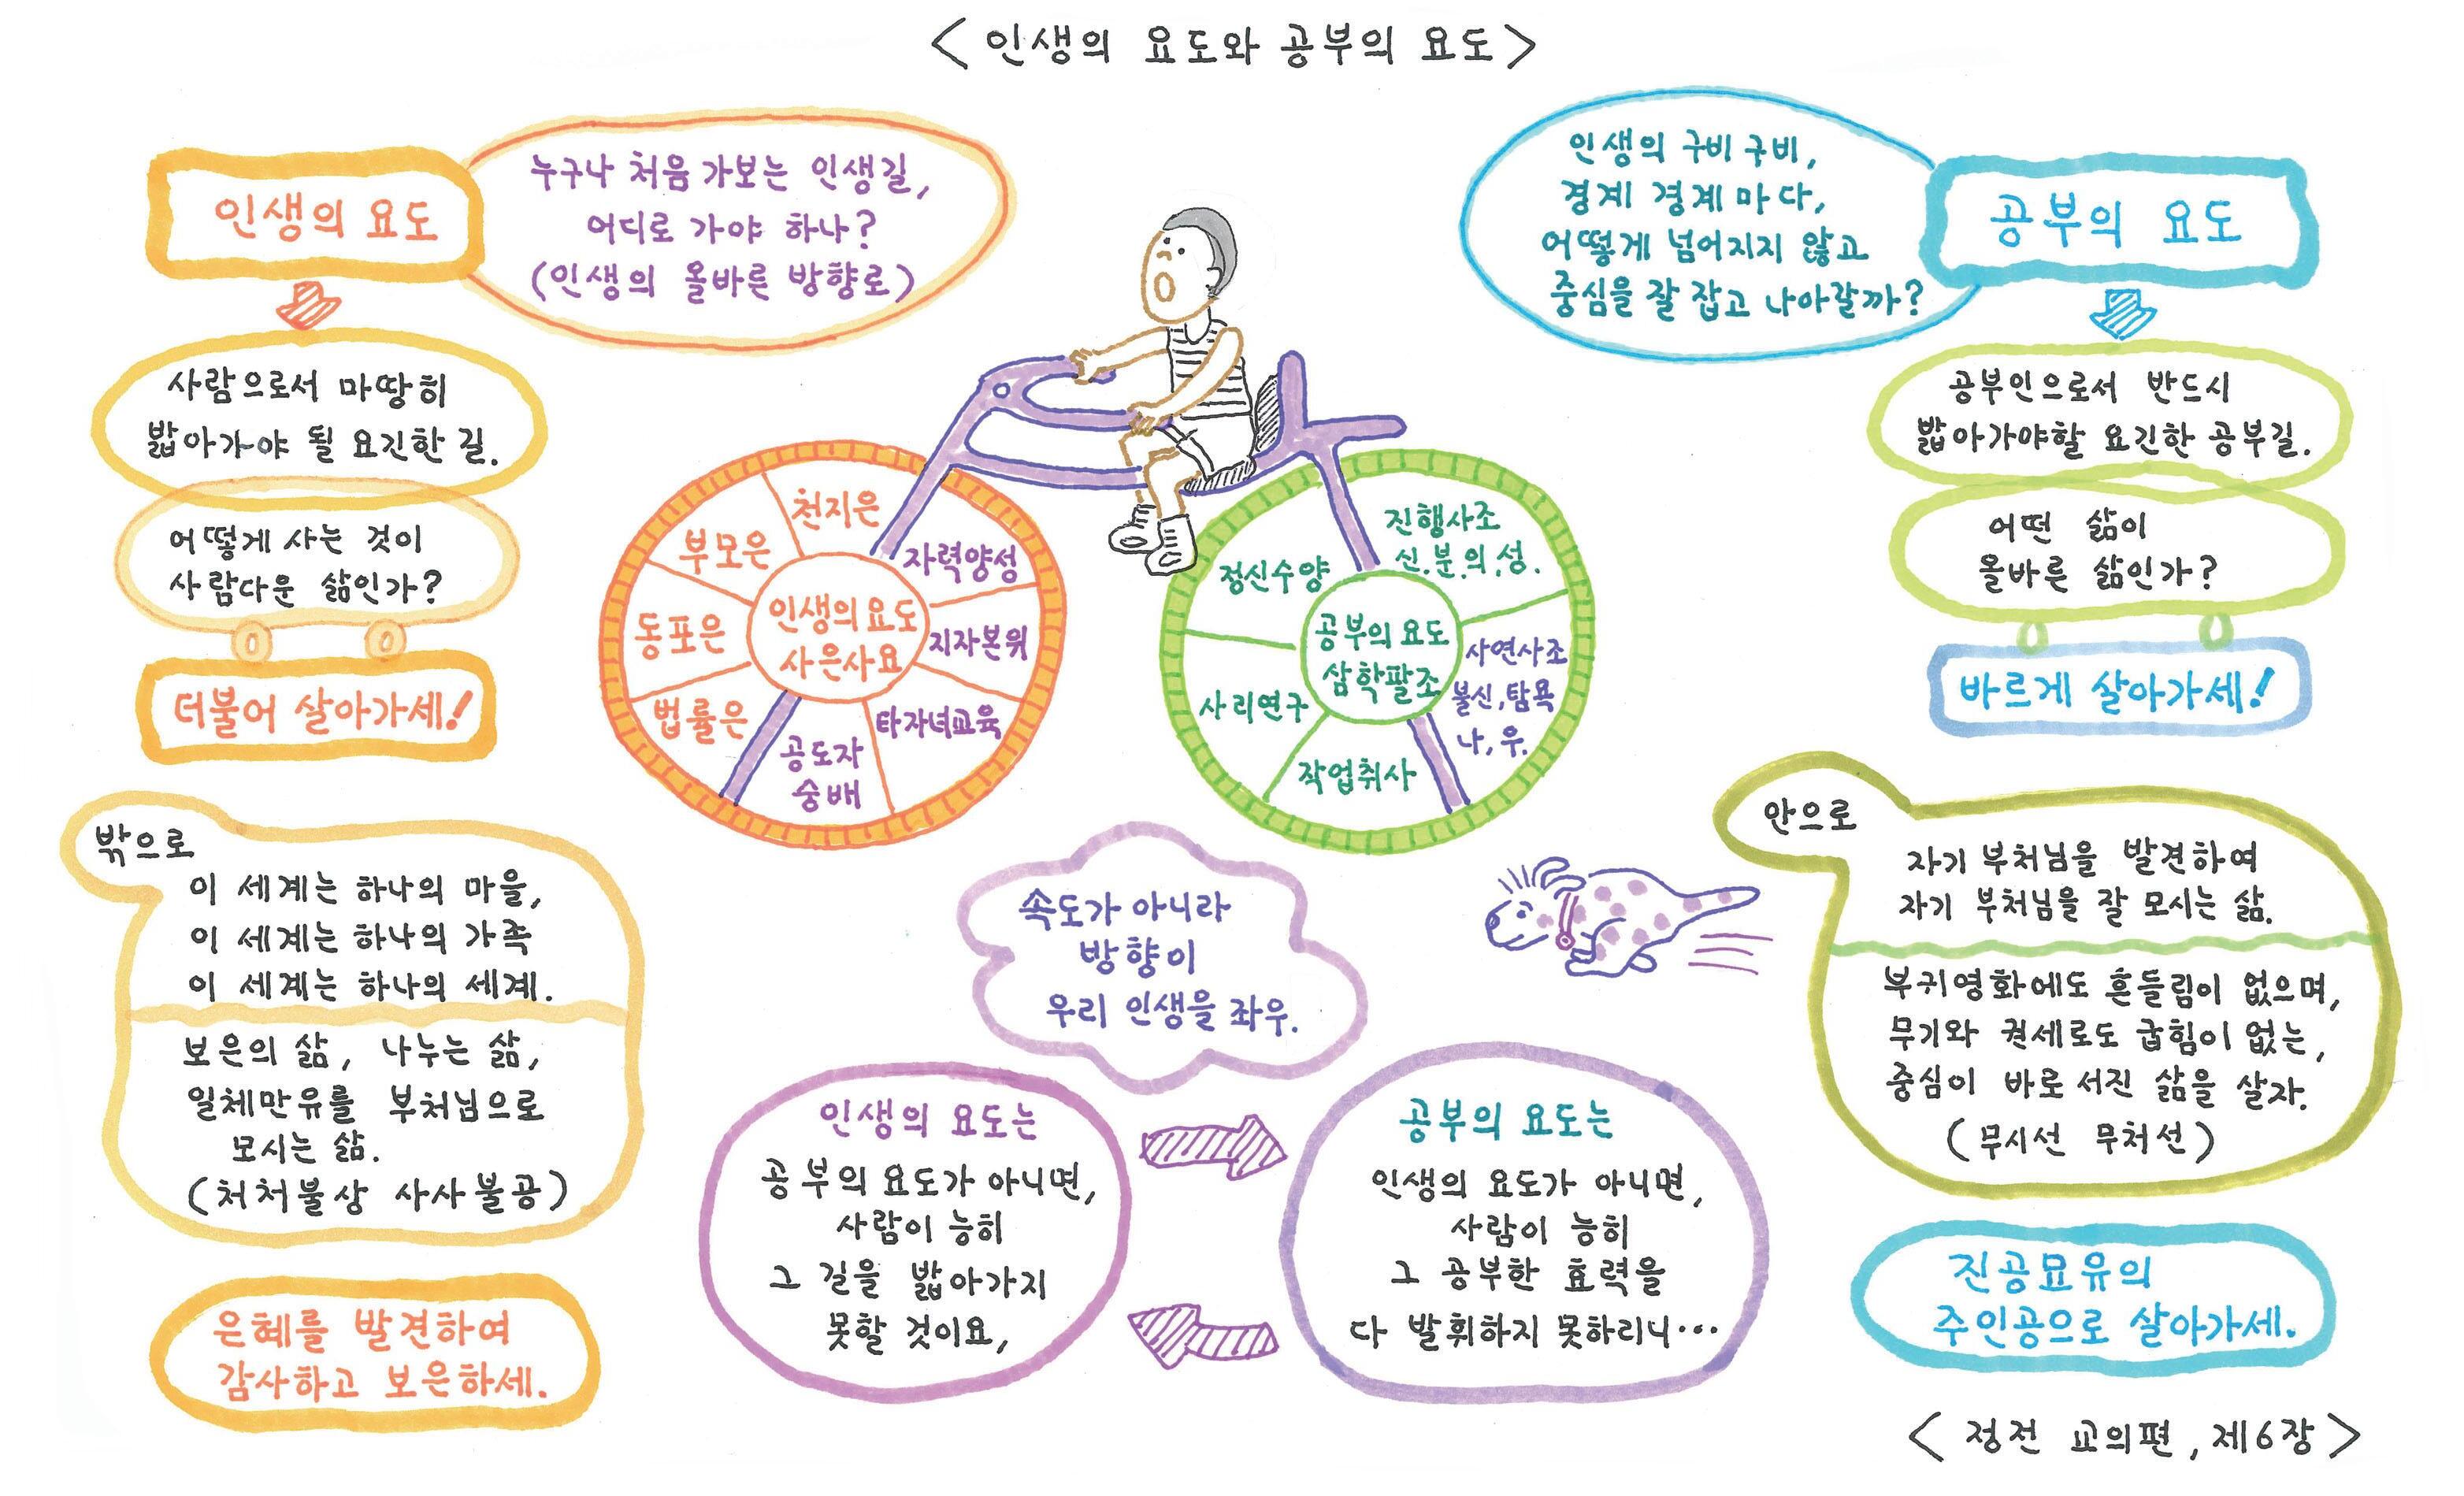 <인생의 요도와 공부의 요도>
인생의 요도
누구나 처음 가보는 인생길,
어디로 가야 하나?
(인생의 올바른 방향로)
사람으로서 마땅히
밟아가야 될 요긴한 길.
어떻게 사는 것이
사람다운 삶인가?
더불어 살아가세!
밖으로
이 세계는 하나의 마을,
이 세계는 하나의 가족
이 세계는 하나의 세계.
보은의 삶, 나누는 삶,
일체만유를 부처님으로
모시는 삶.
(처처불상 사사불공)
은혜를 발견하여
감사하고 보은하세.
인생의 요도
사은사요
천지은
부모은
동포은
법률은
자력양성
지자본위
타자녀교육
공도자
숭배
공부의 요도
삼학팔조
정신수양
사리연구
작업취사
진행사조
신.분.의.성.
사연사조
불신,탐욕
나,우.
속도가 아니라
방향이
우리 인생을 좌우.
인생의 요도는
공부의 요도가 아니면,
사람이 능히
그 길을 밟아가지
못할 것이요,
공부의 요도는
인생의 요도가 아니면,
사람이 능히
그 공부한 효력을
다 발휘하지 못하리니…
인생의 구비구비,
경계 경계마다,
어떻게 넘어지지 않고
중심을 잘 잡고 나아갈까?
공부의 요도
공부인으로서 반드시
밟아가야할 요긴한 공부길.
어떤 삶이
올바른 삶인가?
바르게 살아가세!
안으로
자기 부처님을 발견하여
자기 부처님을 잘 모시는 삶.
부귀영화에도 흔들림이 없으며,
무기와 권세로도 굽힘이 없는,
중심이 바로 서진 삶을 살자.
(무시선 무처선)
진공묘유의
주인공으로 살아가세.
<정전 교의편, 제6장>